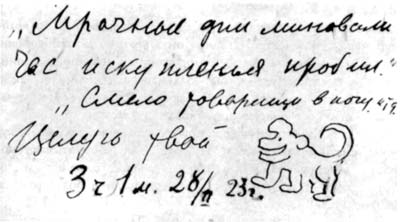 „Мрачные дни миновали
Час искупленья пробил."
„Смело товарищи в ногу" и т д.
Целую твой
3 ч 1 м. 28/II 23 г.